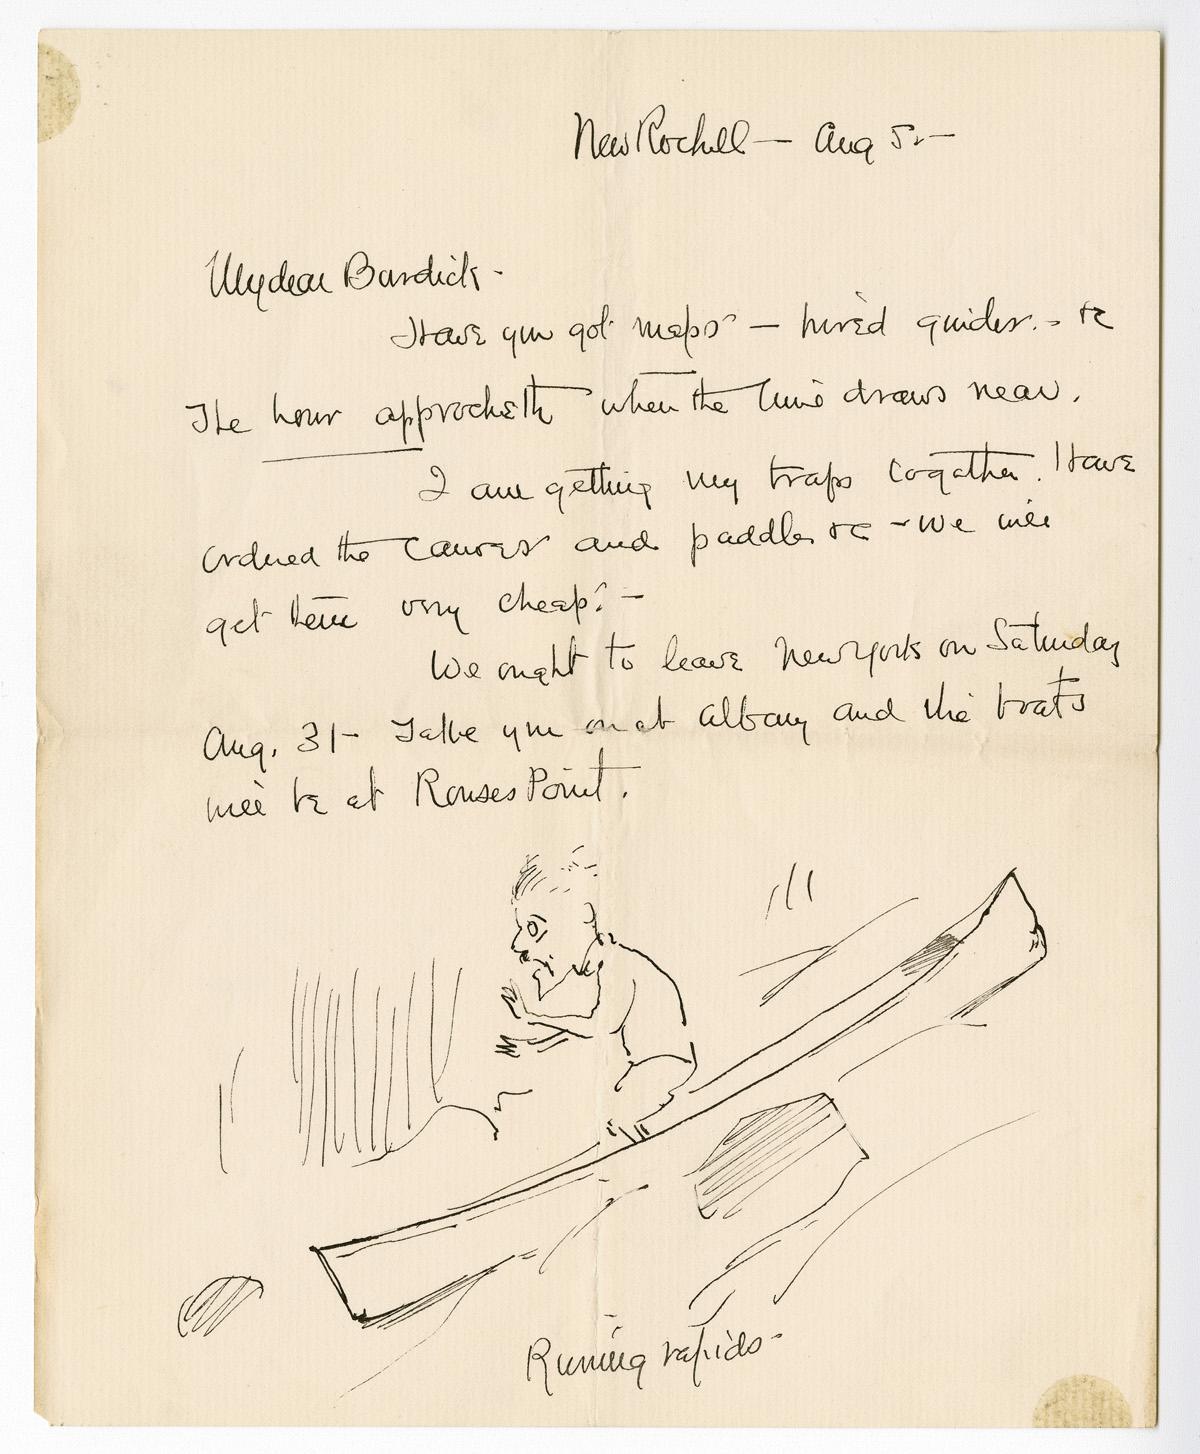 New Rochell — Aug 5. —
My dear Burdick -
Have you got maps — hired guides. - &c
The hour approcheth when the time draws near.
I am getting my traps togather. Have
ordered the canoes and paddles &c - We will
get them very cheap. —
We ought to leave New York on Saturday
Aug. 31 - Take you on at Albany and the boats
will be at Rouses Point.
Runing rapids -